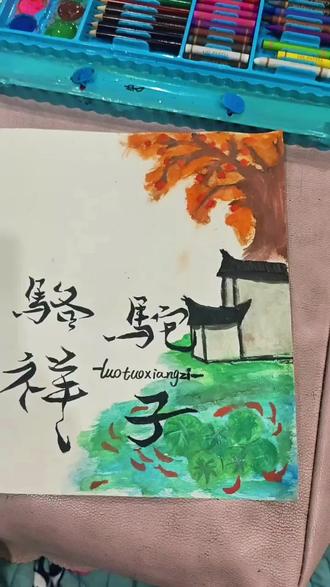 駱駝
祥子
-luotuoxiangzi-